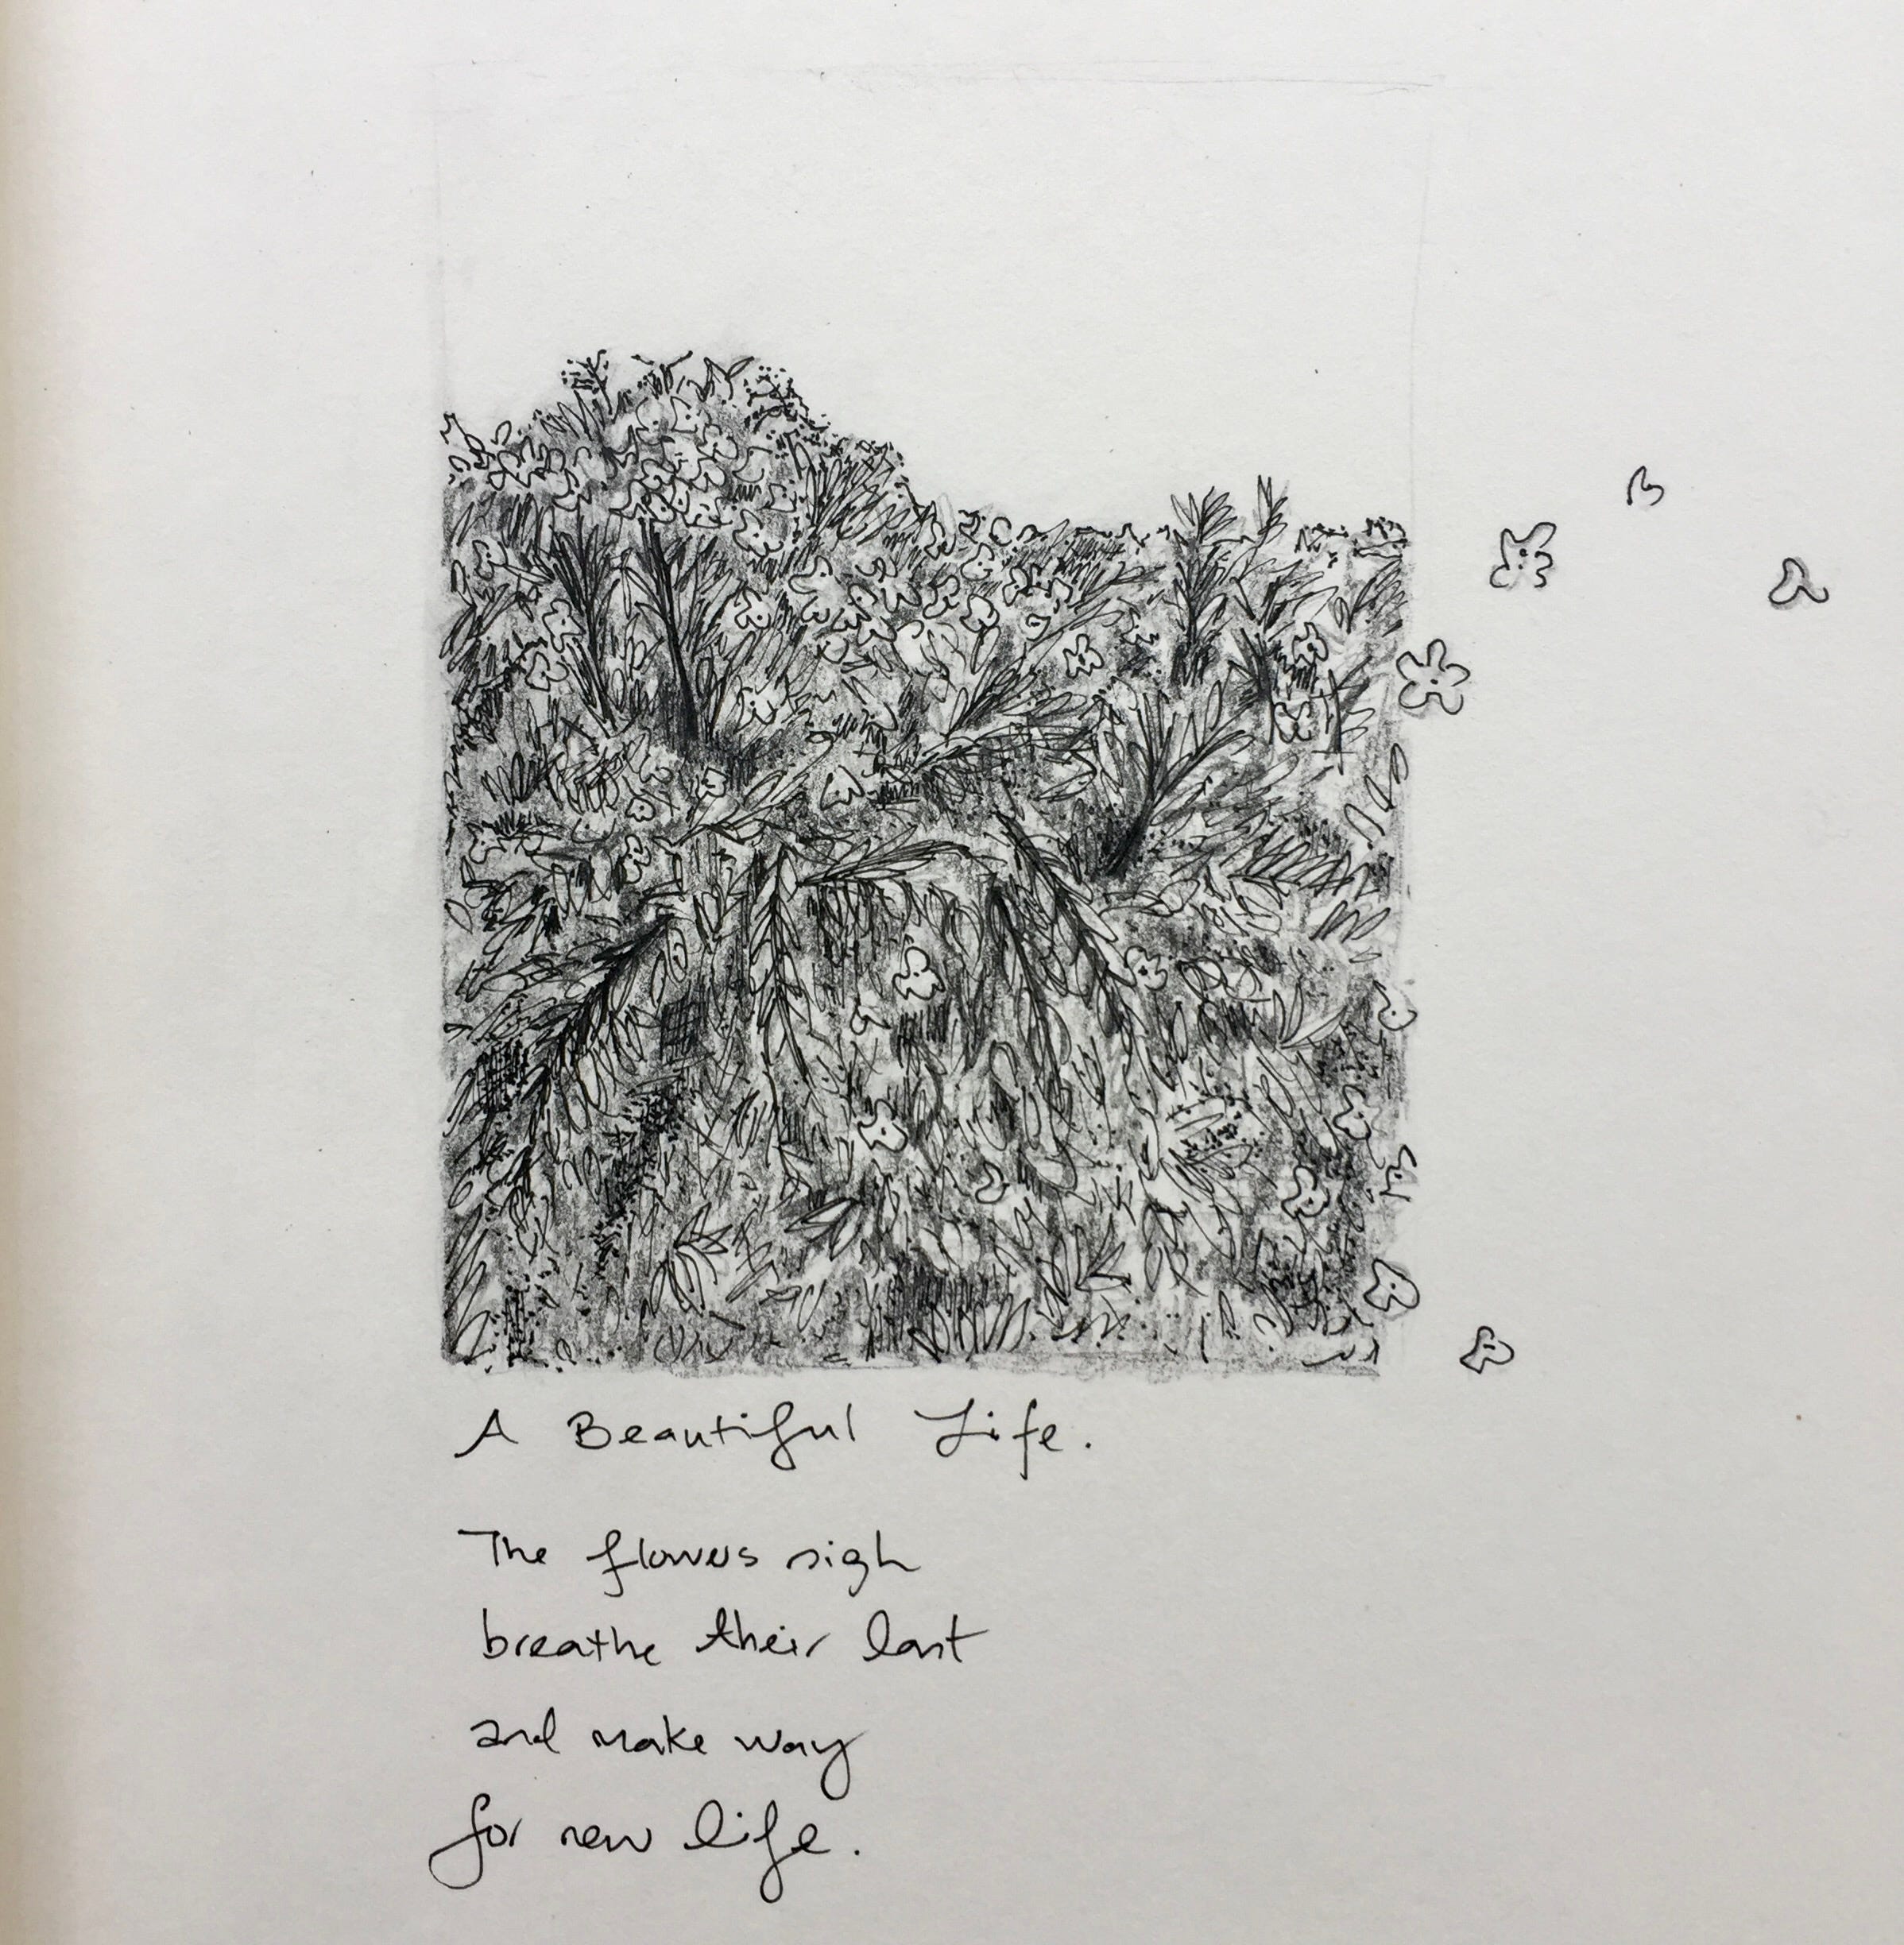 A Beautiful Life.
The flowers sigh
breathe their last
and make way
for new life.